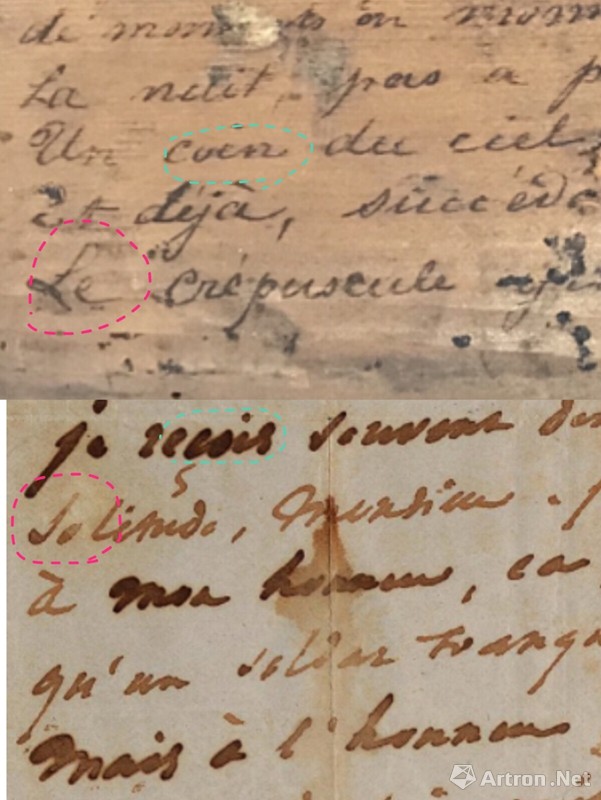 de moments on mom
La nuit, pas a p
Un coin du ciel
Et déjà, succéde
Le crépuscule
je reçois souvent
solitude, Monsieur.
à mon honneur, ca
qu'un soldat tranqu
Mais à l'honneur
Artron.Net